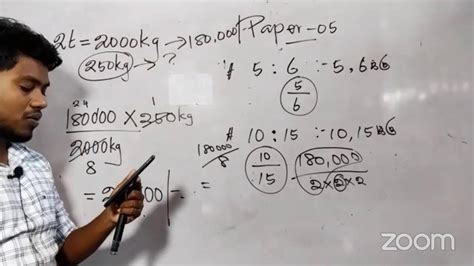 2t = 2000kg → 180,000/- Paper-05
250kg → ?
# 5 : 6 :- 5, 6
5
6
24 1
180000 × 250kg
2000kg
8
# 10 : 15 :- 10, 15
180000
8
=
10
15
180,000
2×2×2
= 2
000/-
zoom